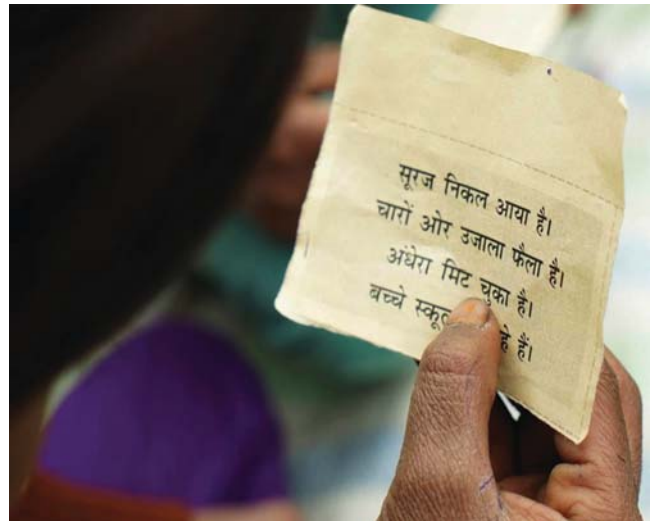 सूरज निकल आया है।
चारों ओर उजाला फैला है।
अंधेरा मिट चुका है।
बच्चे हैं।